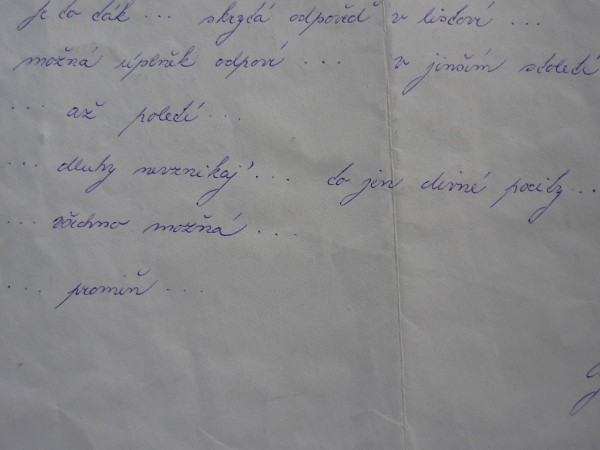 je to ták ... skrytá odpověď v listoví ...
možná úplněk odpoví ... v jinším století
... až poletí ...
... dluhy nevznikaj' ... to jen divné pocity ...
... všechno možná ...
... promiň ...